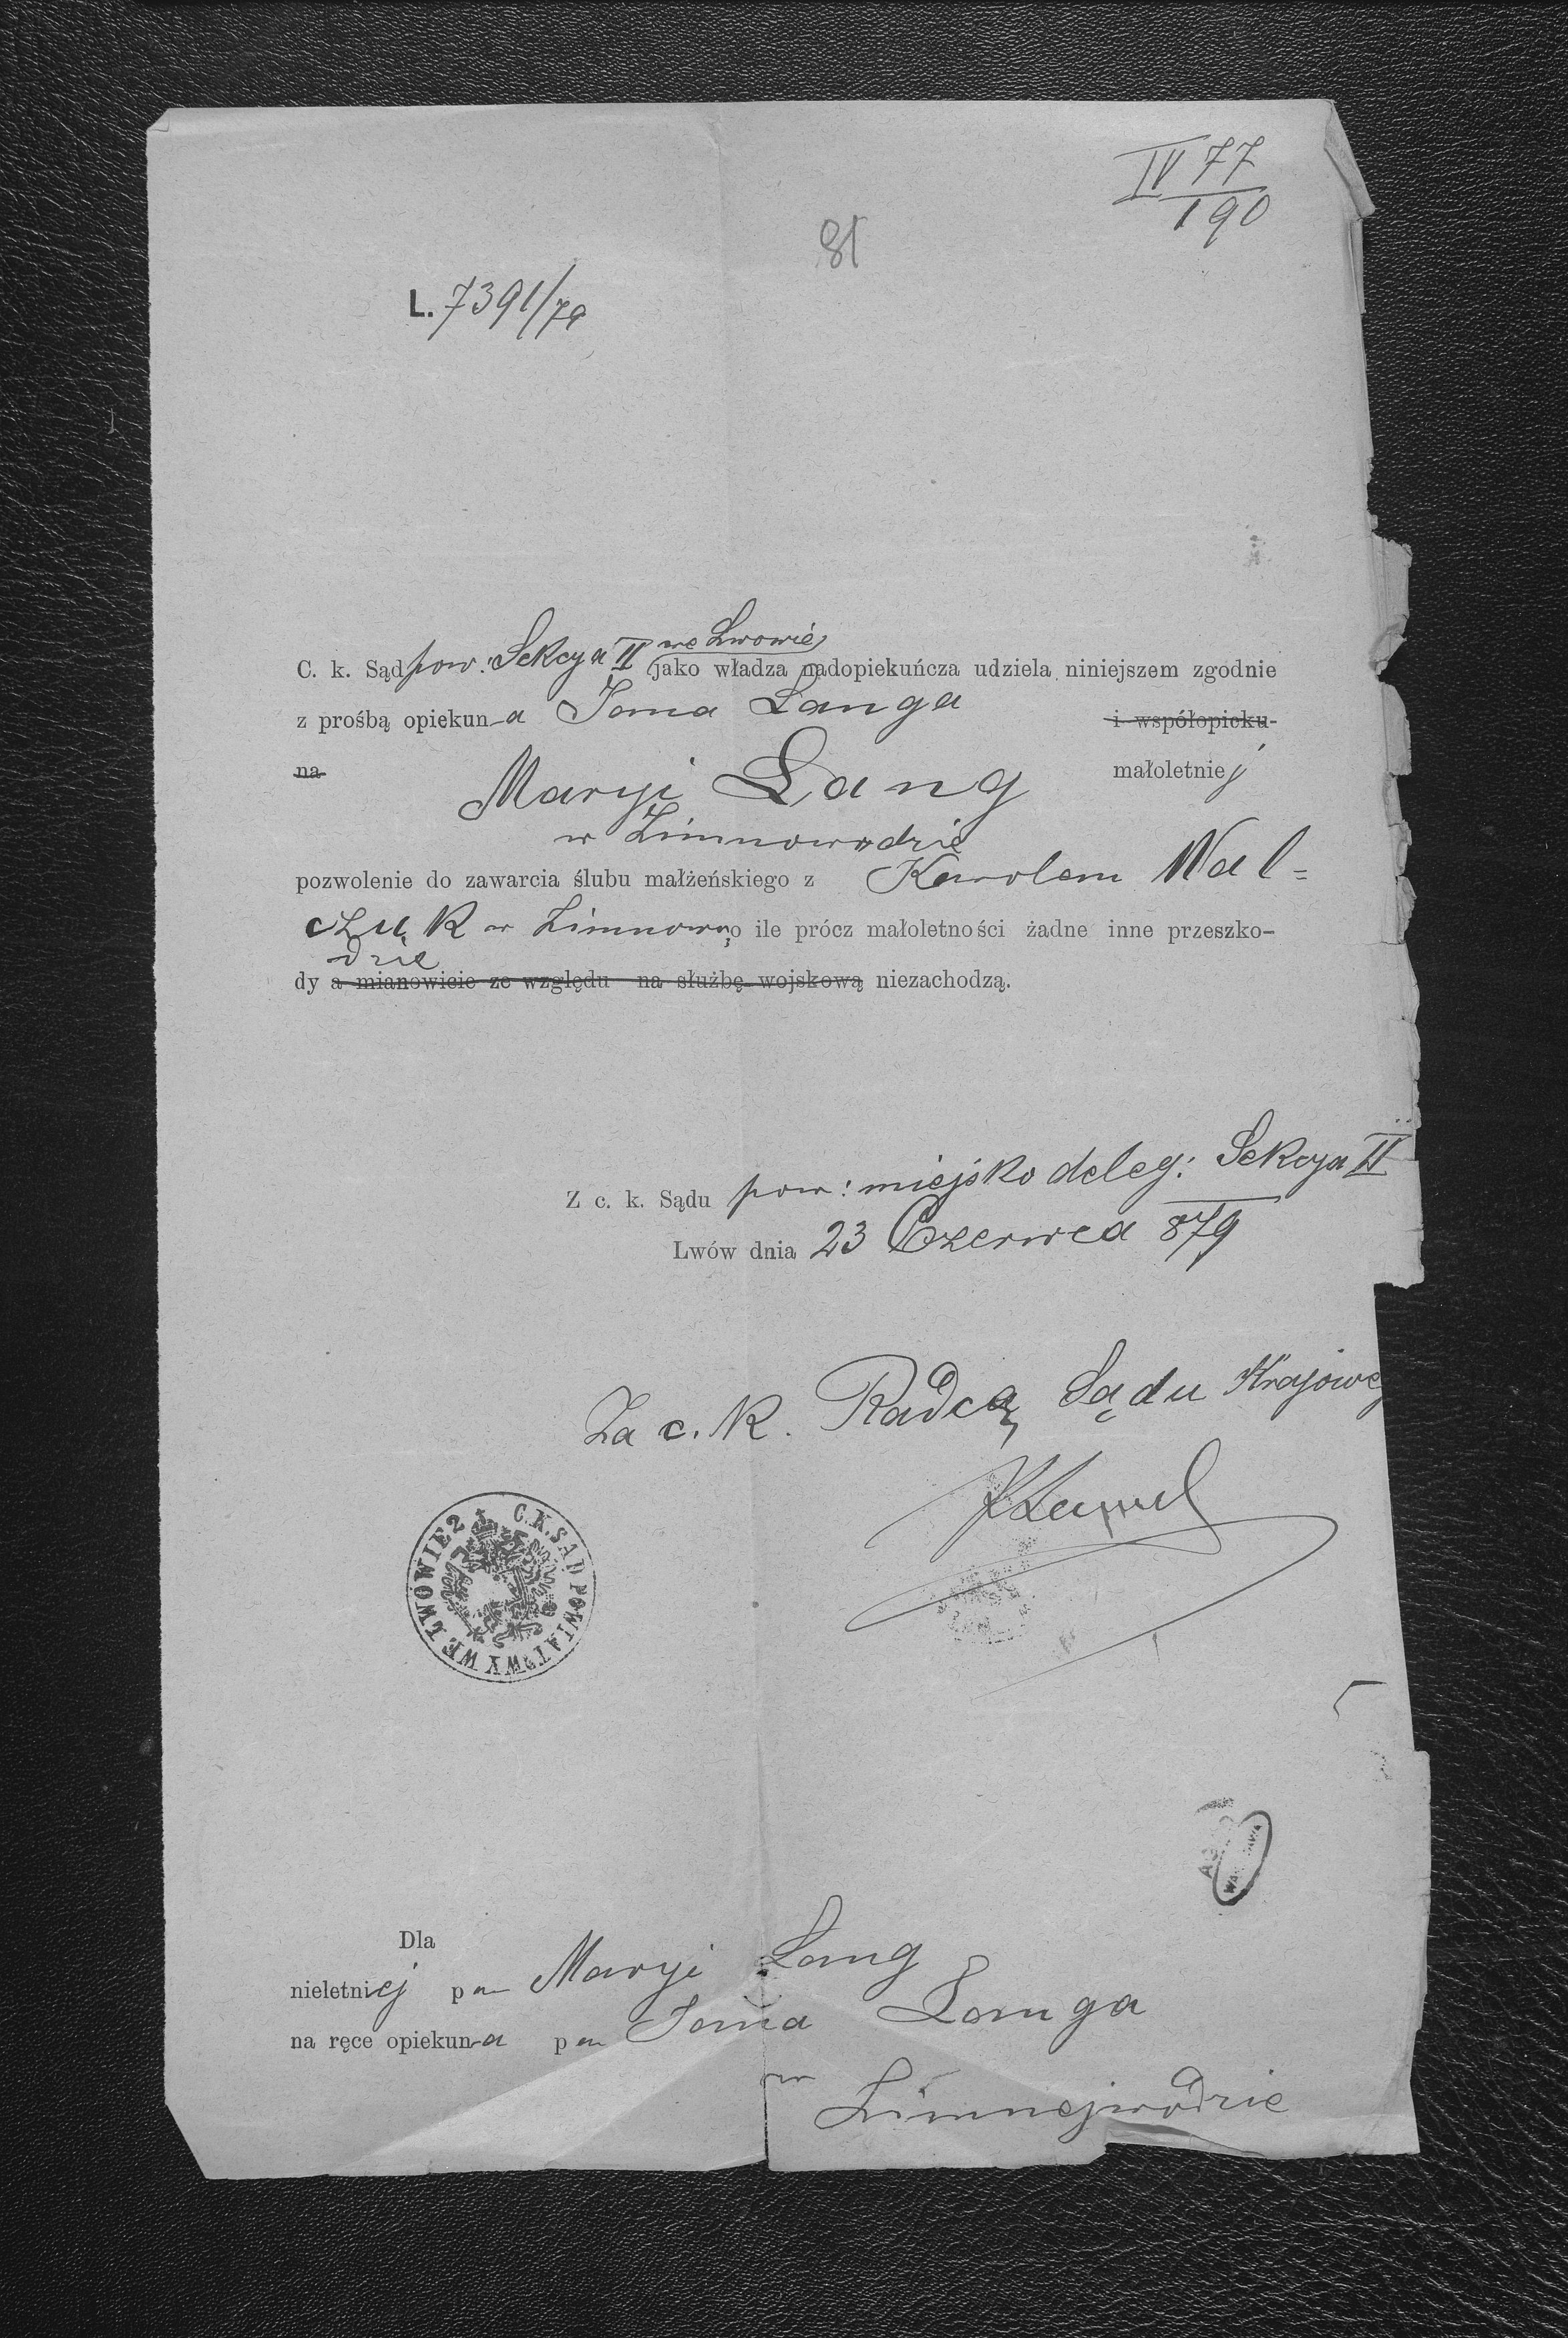 IV 77
190
81
L. 7391/79
we Lwowie
C. k. Sąd pow. Sekcya II jako władza nadopiekuńcza udziela niniejszem zgodnie
z prośbą opiekuna Jana Langa i współopieku-
na Maryi Lang małoletniej
w Zimnowodzie
pozwolenie do zawarcia ślubu małżeńskiego z Karolem Wal=
czuk w Zimnowo o ile prócz małoletności żadne inne przeszko-
dzie
dy a mianowicie ze względu na służbę wojskową niezachodzą.
Z c. k. Sądu pow: miejsko deleg: Sekcya II
Lwów dnia 23 Czerwca 879
Za c. k. Radcą Sądu Krajoweg
C.K. SĄD POWIATOWY WE LWOWIE 2
Dla
nieletniej pa Maryi Lang
na ręce opiekuna pa Jana Langa
w
Zimnejwodzie